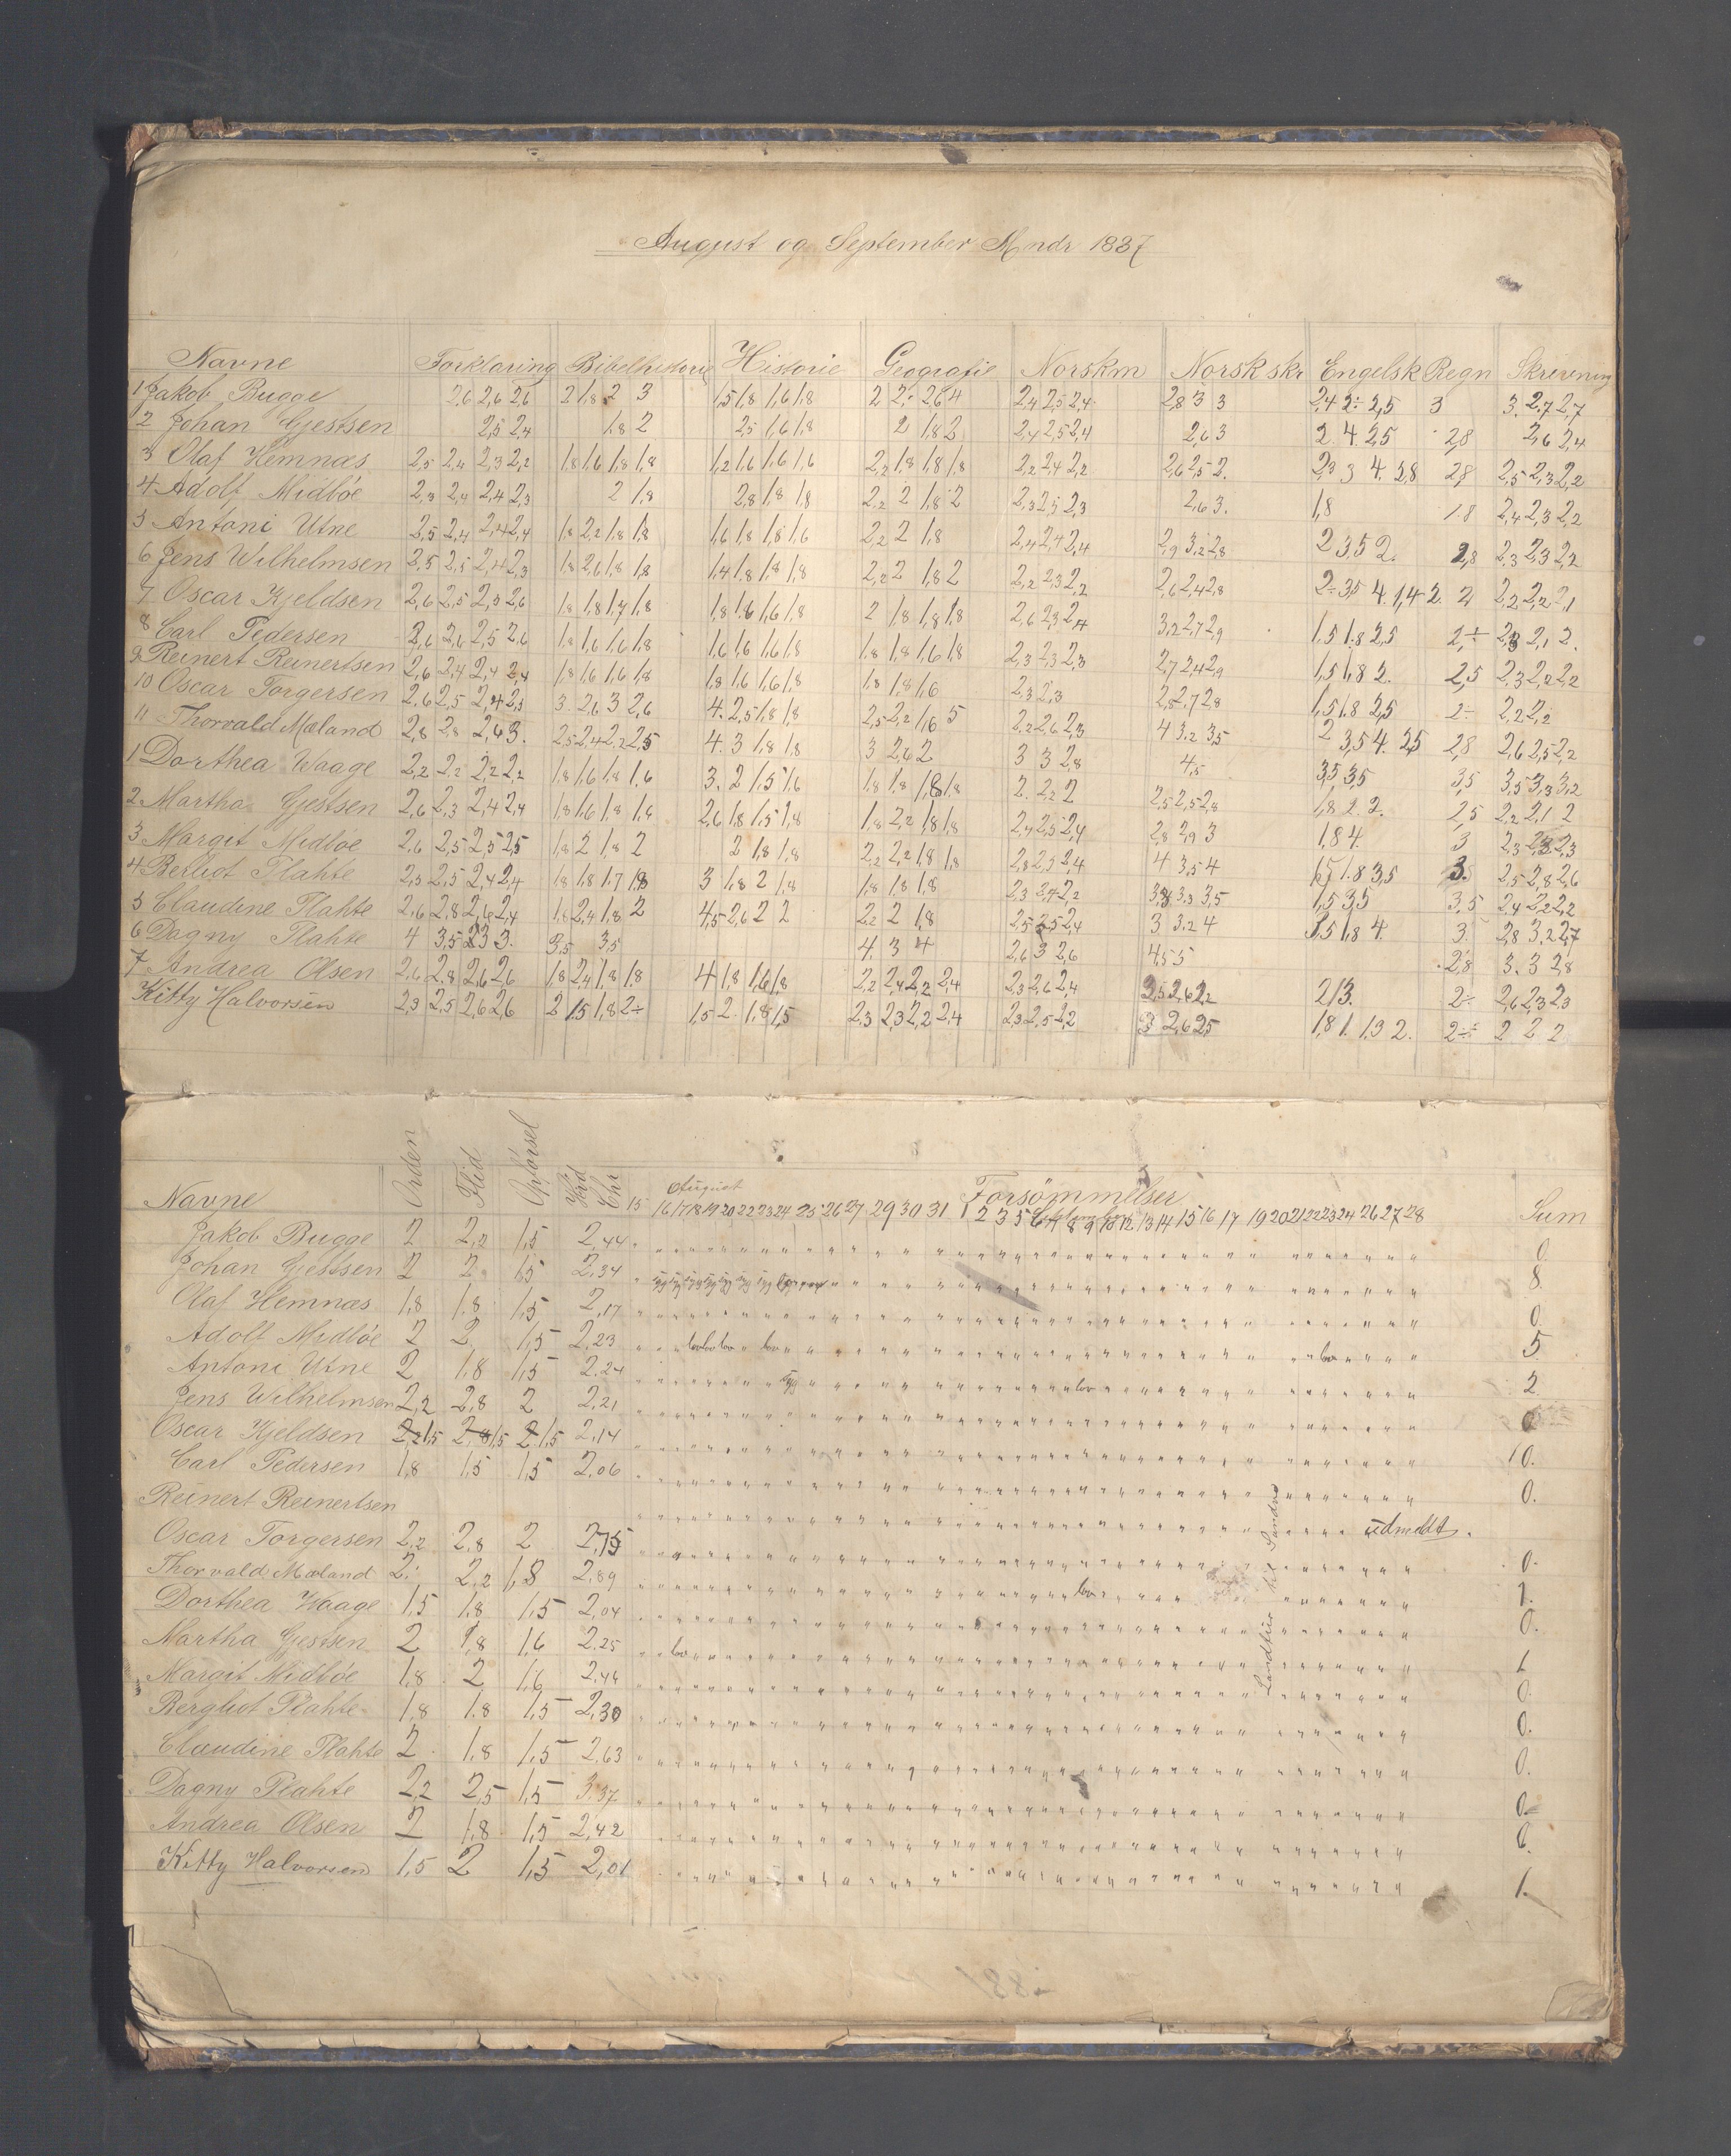 August og September Mndr 1887
Navne Forklaring Bibelhistorie Historie Geografie Norsk m Norsk skr Engelsk Regn Skrivning
1 Jakob Bugge 2,6 2,6 2,6 2 1,8 2 3 1,5 1,8 1,6 1,8 2 2. 2,6 4 2,4 2,5 2,4 2,8 3 3 2,4 2÷ 2,5 3 3. 2,7 2,7
2 Johan Gjestsen 2,5 2,4 1,8 2 2,5 1,6 1,8 2 1,8 2 2,4 2,5 2,4 2,6 3 2. 4. 2,5 2,8 2,6 2,4
3 Olaf Hemnæs 2,5 2,4 2,3 2,2 1,8 1,6 1,8 1,8 1,2 1,6 1,6 1,6 2,2 1,8 1,8 1,8 2,2 2,4 2,2 2,6 2,5 2. 2,3 3 4. 2,8 2,8 2,5 2,3 2,2
4 Adolf Midbøe 2,3 2,4 2,4 2,3 2 1,8 2,8 1,8 1,8 2,2 2 1,8 2 2,3 2,5 2,3 2,6 3. 1,8 1,8 2,4 2,3 2,2
5 Antoni Utne 2,5 2,4 2,4 2,4 1,8 2,2 1,8 1,8 1,6 1,8 1,8 1,6 2,2 2 1,8 2,4 2,4 2,4 2,9 3,2 2,8 2 3 5 2. 2,8 2,3 2,3 2,2
6 Jens Wilhelmsen 2,5 2,5 2,4 2,3 1,8 2,6 1,8 1,8 1,4 1,8 1,8 1,8 2,2 2 1,8 2 2,2 2,3 2,2 2,6 2,4 2,8 2÷ 3,5 4. 1,4 2. 2 2,2 2,2 2,1
7 Oscar Kjeldsen 2,6 2,5 2,5 2,6 1,8 1,8 1,7 1,8 1,8 1,6 1,6 1,8 2 1,8 1,8 1,8 2,6 2,3 2,4 3,2 2,7 2,9 1,5 1,8 2,5 2,÷ 2,3 2,1 2.
8 Carl Pedersen 2,6 2,6 2,5 2,6 1,8 1,6 1,6 1,8 1,6 1,6 1,6 1,8 1,8 1,8 1,6 1,8 2,3 2,3 2,3 2,7 2,4 2,9 1,5 1,8 2. 2,5 2,3 2,2 2,2
9 Reinert Reinertsen 2,6 2,4 2,4 2,4 1,8 1,6 1,6 1,8 1,8 1,6 1,6 1,8 1,8 1,8 1,6 2,3 2,3 2,8 2,7 2,8 1,5 1,8 2,5 2÷ 2,2 2,2
10 Oscar Torgersen 2.6 2,5 2,4 2,3 3. 2,6 3 2,6 4. 2,5 1,8 1,8 2,5 2,2 1,6 5 2,2 2,6 2,3 4 3,2 3,5 2 3,5 4. 2,5 2,8 2,6 2,5 2,2
11 Thorvald Mæland 2,8 2,8 2,6 3. 2,5 2,4 2,2 2,5 4. 3 1,8 1,8 3 2,6 2 3 3 2,8 4,5 3,5 3,5 3,5 3,5 3,3 3,2
1 Dorthea Waage 2,2 2,2 2,2 2,2 1,8 1,6 1,8 1,6 3. 2 1,5 1,6 1,8 1,8 1,8 1,8 2. 2,2 2 2,5 2,5 2,8 1,8 2. 2. 2,5 2,2 2,1 2
2 Martha Gjestsen 2,6 2,3 2,4 2,4 1,8 1,6 1,8 1,6 2,6 1,8 1,5 1,8 1,8 2,2 1,8 1,8 2,4 2,5 2,4 2,8 2,9 3 1,8 4. 3 2,3 2,3 2,3
3 Margit Midbøe 2,6 2,5 2,5 2,5 1,8 2 1,8 2 2 1,8 1,8 2,2 2,2 1,8 1,8 2,8 2,5 2,4 4 3,5 4 1,5 1,8 3,5 3. 2,5 2,8 2,6
4 Berliot Plahte 2,3 2,5 2,4 2,4 1,8 1,8 1,7 1,8 3 1,8 2 1,8 1,8 1,8 1,8 2,3 2,4 2,2 3,8 3,3 3,5 1,5 3,5 3,5 2,4 2,2 2,2
5 Claudine Plahte 2,6 2,8 2,6 2,4 1,8 2,4 1,8 2 4,5 2,6 2 2 2,2 2 1,8 2,5 2,5 2,4 3 3,2 4 3,5 1,8 4. 3. 2,8 3,2 2,7
6 Dagny Plahte 4 3,5 2,3 3. 3,5 3,5 4. 3 4 2,6 3 2,6 4,5 5 2,8 3. 3 2,8
7 Andrea Olsen 2,6 2,8 2,6 2,6 1,8 2,4 1,8 1,8 4 1,8 1,6 1,8 2,2 2,4 2,2 2,4 2,3 2,6 2,4 2,5 2,6 2,2 2 1,3. 2÷ 2,6 2,3 2,3
Kitty Halvorsen 2,3 2,5 2,6 2,6 2 1,5 1,8 2÷ 1,5 2. 1,8 1,5 2,3 2,3 2,2 2,4 2,3 2,5 2,2 3 2,6 2,5 1,8 1. 1,3 2. 2÷ 2 2 2
Navne Orden Flid Opførsel Hvd Chr August Forsømmelser September Sum
15 16 17 18 19 20 22 23 24 25 26 27 29 30 31 1 2 3 5 6 7 8 9 10 12 13 14 15 16 17 19 20 21 22 23 24 26 27 28
Jakob Bugge 2 2,2 1,5 2,44 0.
Johan Gjestsen 2 2 1,5 2,34 syg syg syg syg syg syg syg 8.
Olaf Hemnæs 1,8 1,8 1,5 2,17 0.
Adolf Midbøe 2 2 1,5 2,23 lov lov lov lov lov 5.
Antoni Utne 2 1,8 1,5 2.24 syg lov 2.
Jens Wilhelmsen 2,2 2,8 2 2,21 0
Oscar Kjeldsen 2,2 1,5 2,8 1,5 2 1,5 2,14 0.
Carl Pedersen 1,8 1,5 1,5 2,06 0.
Reinert Reinertsen udmeldt.
Oscar Torgersen 2,2 2,8 2 2,75 0.
Thorvald Mæland 2. 2,2 1,8 2,89 lov 1.
Dorthea Waage 1,5 1,8 1,5 2,04 0.
Martha Gjestsen 2 1,8 1,6 2.25 lov 1
Margit Midbøe 1,8 2 1,6 2,44 0.
Bergliot Plahte 1,8 1.8 1,5 2,30 0.
Claudine Plahte 2 1,8 1,5 2.63 0.
Dagny Plahte 2,2 2,5 1,5 3.37 0
Andrea Olsen 2 1,8 1,5 2,42 0.
Kitty Halvorsen 1,5 2 1,5 2,01 1.
Landtur til Sandnes